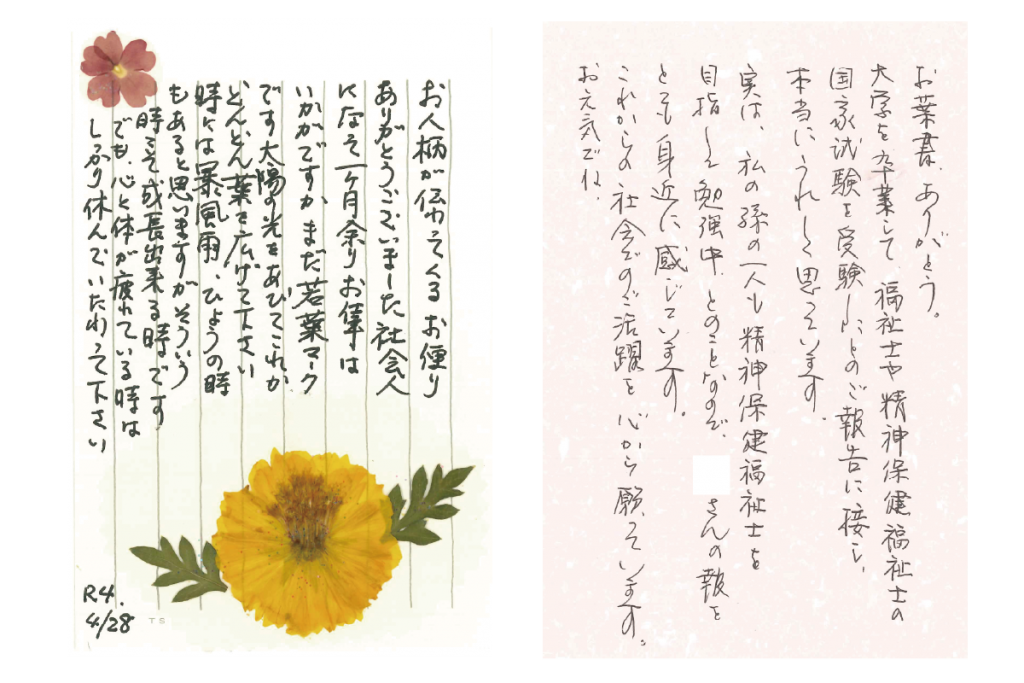 お人柄が伝わってくるお便り
ありがとうございました 社会人
になって一ヶ月余りお仕事は
いかがですか まだ若葉マーク
です 太陽の光をあびてこれか
どんどん葉を広げて下さい
時には暴風雨、ひょうの時
もあると思いますがそういう
時こそ成長出来る時です
でも、心と体が疲れている時は
しっかり休んでいたわって下さい
R4.
4/28
TS
お葉書、ありがとう。
大学を卒業して、福祉士や精神保健福祉士の
国家試験を受験したとのご報告に接し、
本当にうれしく思っています。
実は、私の孫の一人も精神保健福祉士を
目指して勉強中、とのことなので、 さんの報を
とても身近に感じています。
これからの社会でのご活躍を心から願っています。
お元気でね。